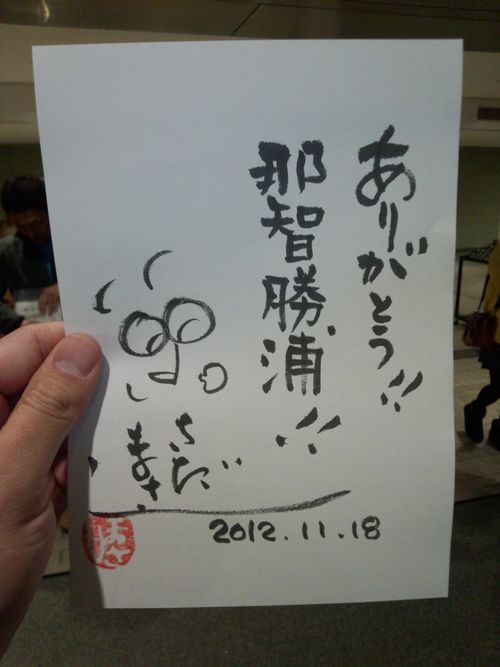 ありがとう!!
那智勝浦!!
さだ
まさし
2012.11.18